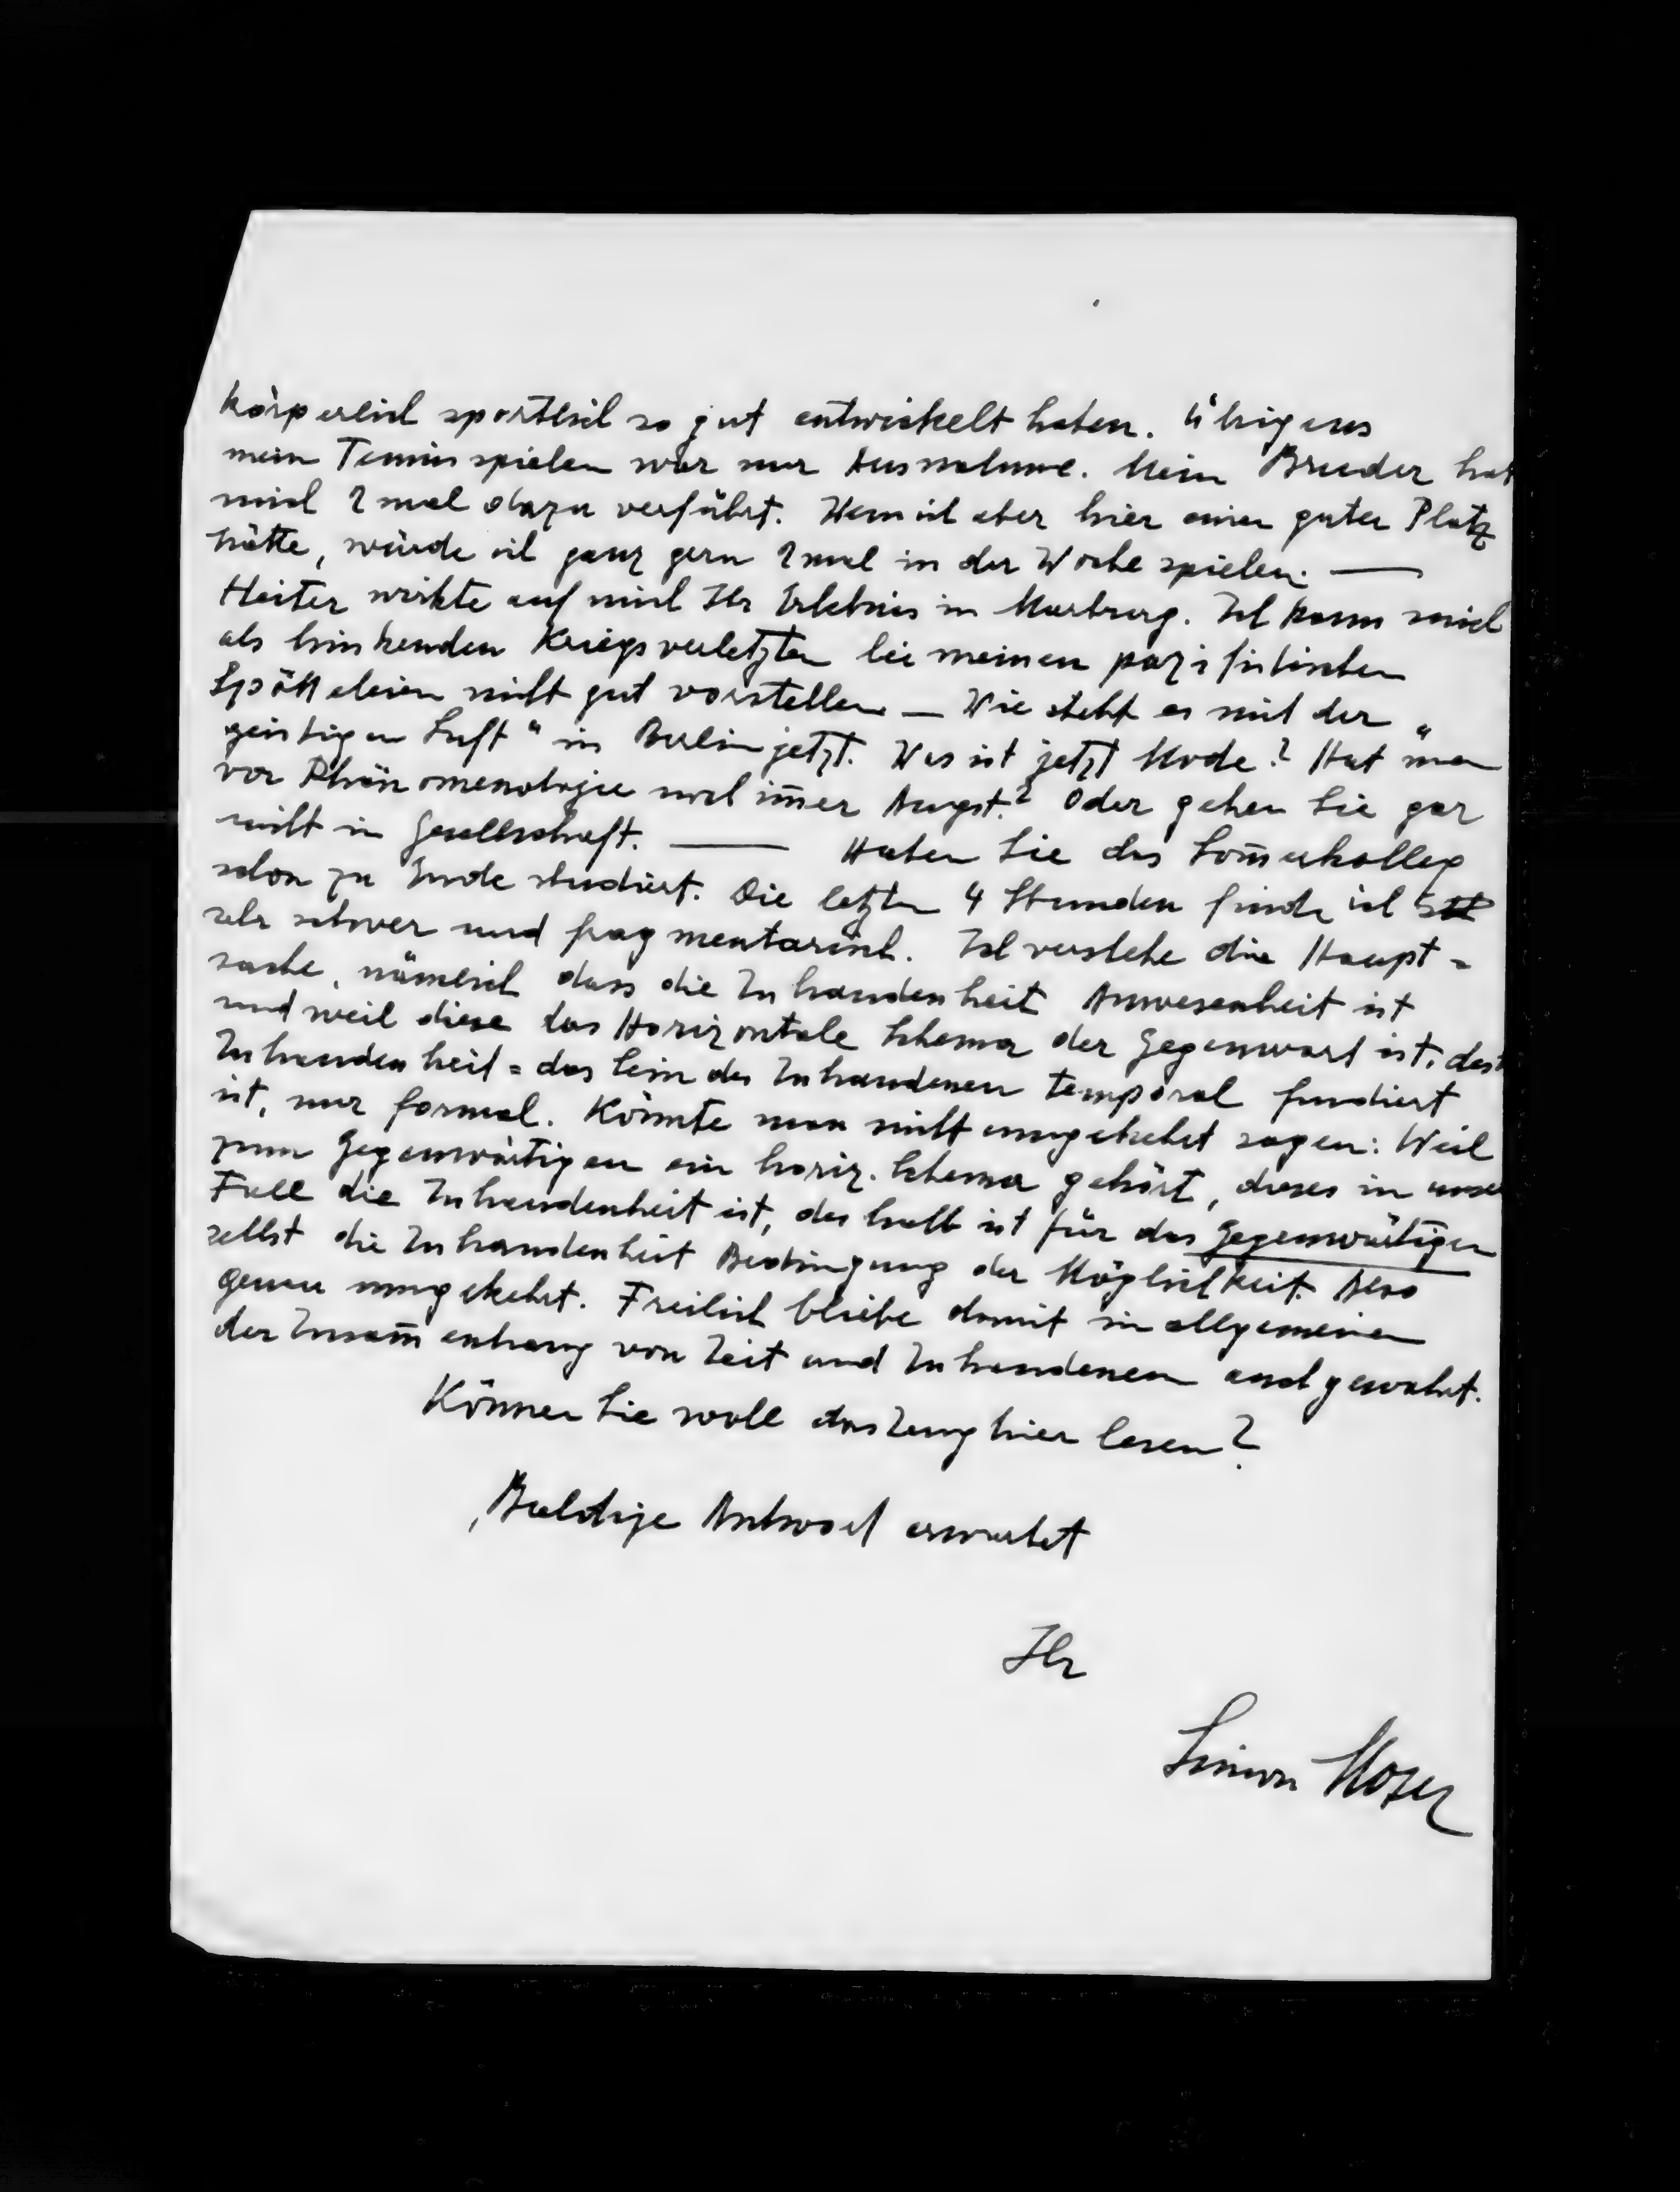 körperlich sportlich so gut entwickelt haben. Übrigens
mein Tennisspielen war nur Ausnahme. Mein Bruder hat
mich 2 mal dazu verführt. Wenn ich aber hier einen guten Platz
hätte, würde ich ganz gern 2 mal in der Woche spielen. —
Heiter wirkte auf mich Ihr Erlebnis in Marburg. Ich kann mich
als hinkenden Kriegsverletzten bei meinen pazifistischen
Spötteleien nicht gut vorstellen — Wie steht es mit der „
geistigen Luft“ in Berlin jetzt. Was ist jetzt Mode? Hat man
vor Phänomenologie noch im̄er Angst? Oder gehen Sie gar
nicht in Gesellschaft. — Haben Sie das Som̄erkolleg
schon zu Ende studiert. Die letzten 4 Stunden finde ich
sehr schwer und fragmentarisch. Ich verstehe die Haupt =
sache, nämlich dass die Zuhandenheit Anwesenheit ist
und weil diese das Horizontale Schema der Gegenwart ist, dass
Zuhandenheit = das Sein des Zuhandenen temporal fundiert
ist, nur formal. Könnte man nicht umgekehrt sagen: Weil
zum Gegenwärtigen ein horiz. Schema gehört, dieses in unser
Fall die Zuhandenheit ist, deshalb ist für das Gegenwärtigen
selbst die Zuhandenheit Bedingung der Möglichkeit. Also
genau umgekehrt. Freilich bliebe damit im allgemeinen
der Zusam̄enhang von Zeit und Zuhandenem auch gewahrt.
Können Sie wohl das Zeug hier lesen?
Baldige Antwort erwartet
Ihr
Simon Moser